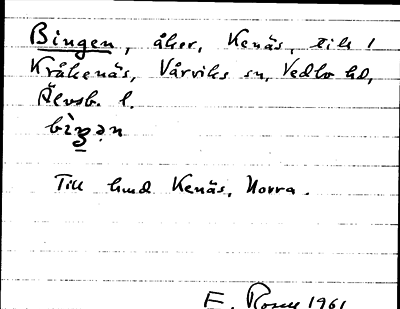 Bingen, åker, Kenäs, till 1
Kråkenäs, Vårviks sn, Vedbo hd,
Älvsb. l.
bìŋən
Till hmd Kenäs, Norra.
E. Rosell 1961